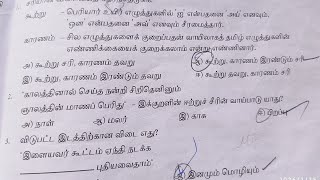 கூற்று - பெரியார் உயிர் எழுத்துகளில் 'ஐ' என்பதனை 'அய்' எனவும்,
ஒள என்பதனை 'அவ்' எனவும் சீரமைத்தார்.
காரணம் - சில எழுத்துகளைக் குறைப்பதன் வாயிலாகத் தமிழ் எழுத்துகளின்
எண்ணிக்கையைக் குறைக்கலாம் என்று எண்ணினார்.
அ) கூற்று சரி, காரணம் தவறு ஆ) கூற்று, காரணம் இரண்டும் சரி
இ) கூற்று, காரணம் இரண்டும் தவறு ஈ) கூற்று தவறு, காரணம் சரி
2. 'காலத்தினால் செய்த நன்றி சிறிதெனினும்
ஞாலத்தின் மாணப் பெரிது' - இக்குறளின் ஈற்றுச் சீரின் வாய்பாடு யாது?
அ) நாள் ஆ) மலர் இ) காசு ஈ) பிறப்பு
3. விடுபட்ட இடத்திற்கான விடை எது?
'இளையவர் கூட்டம் ஏந்தி நடக்க
புதியவைதாம்'
இனமும் மொழியும்